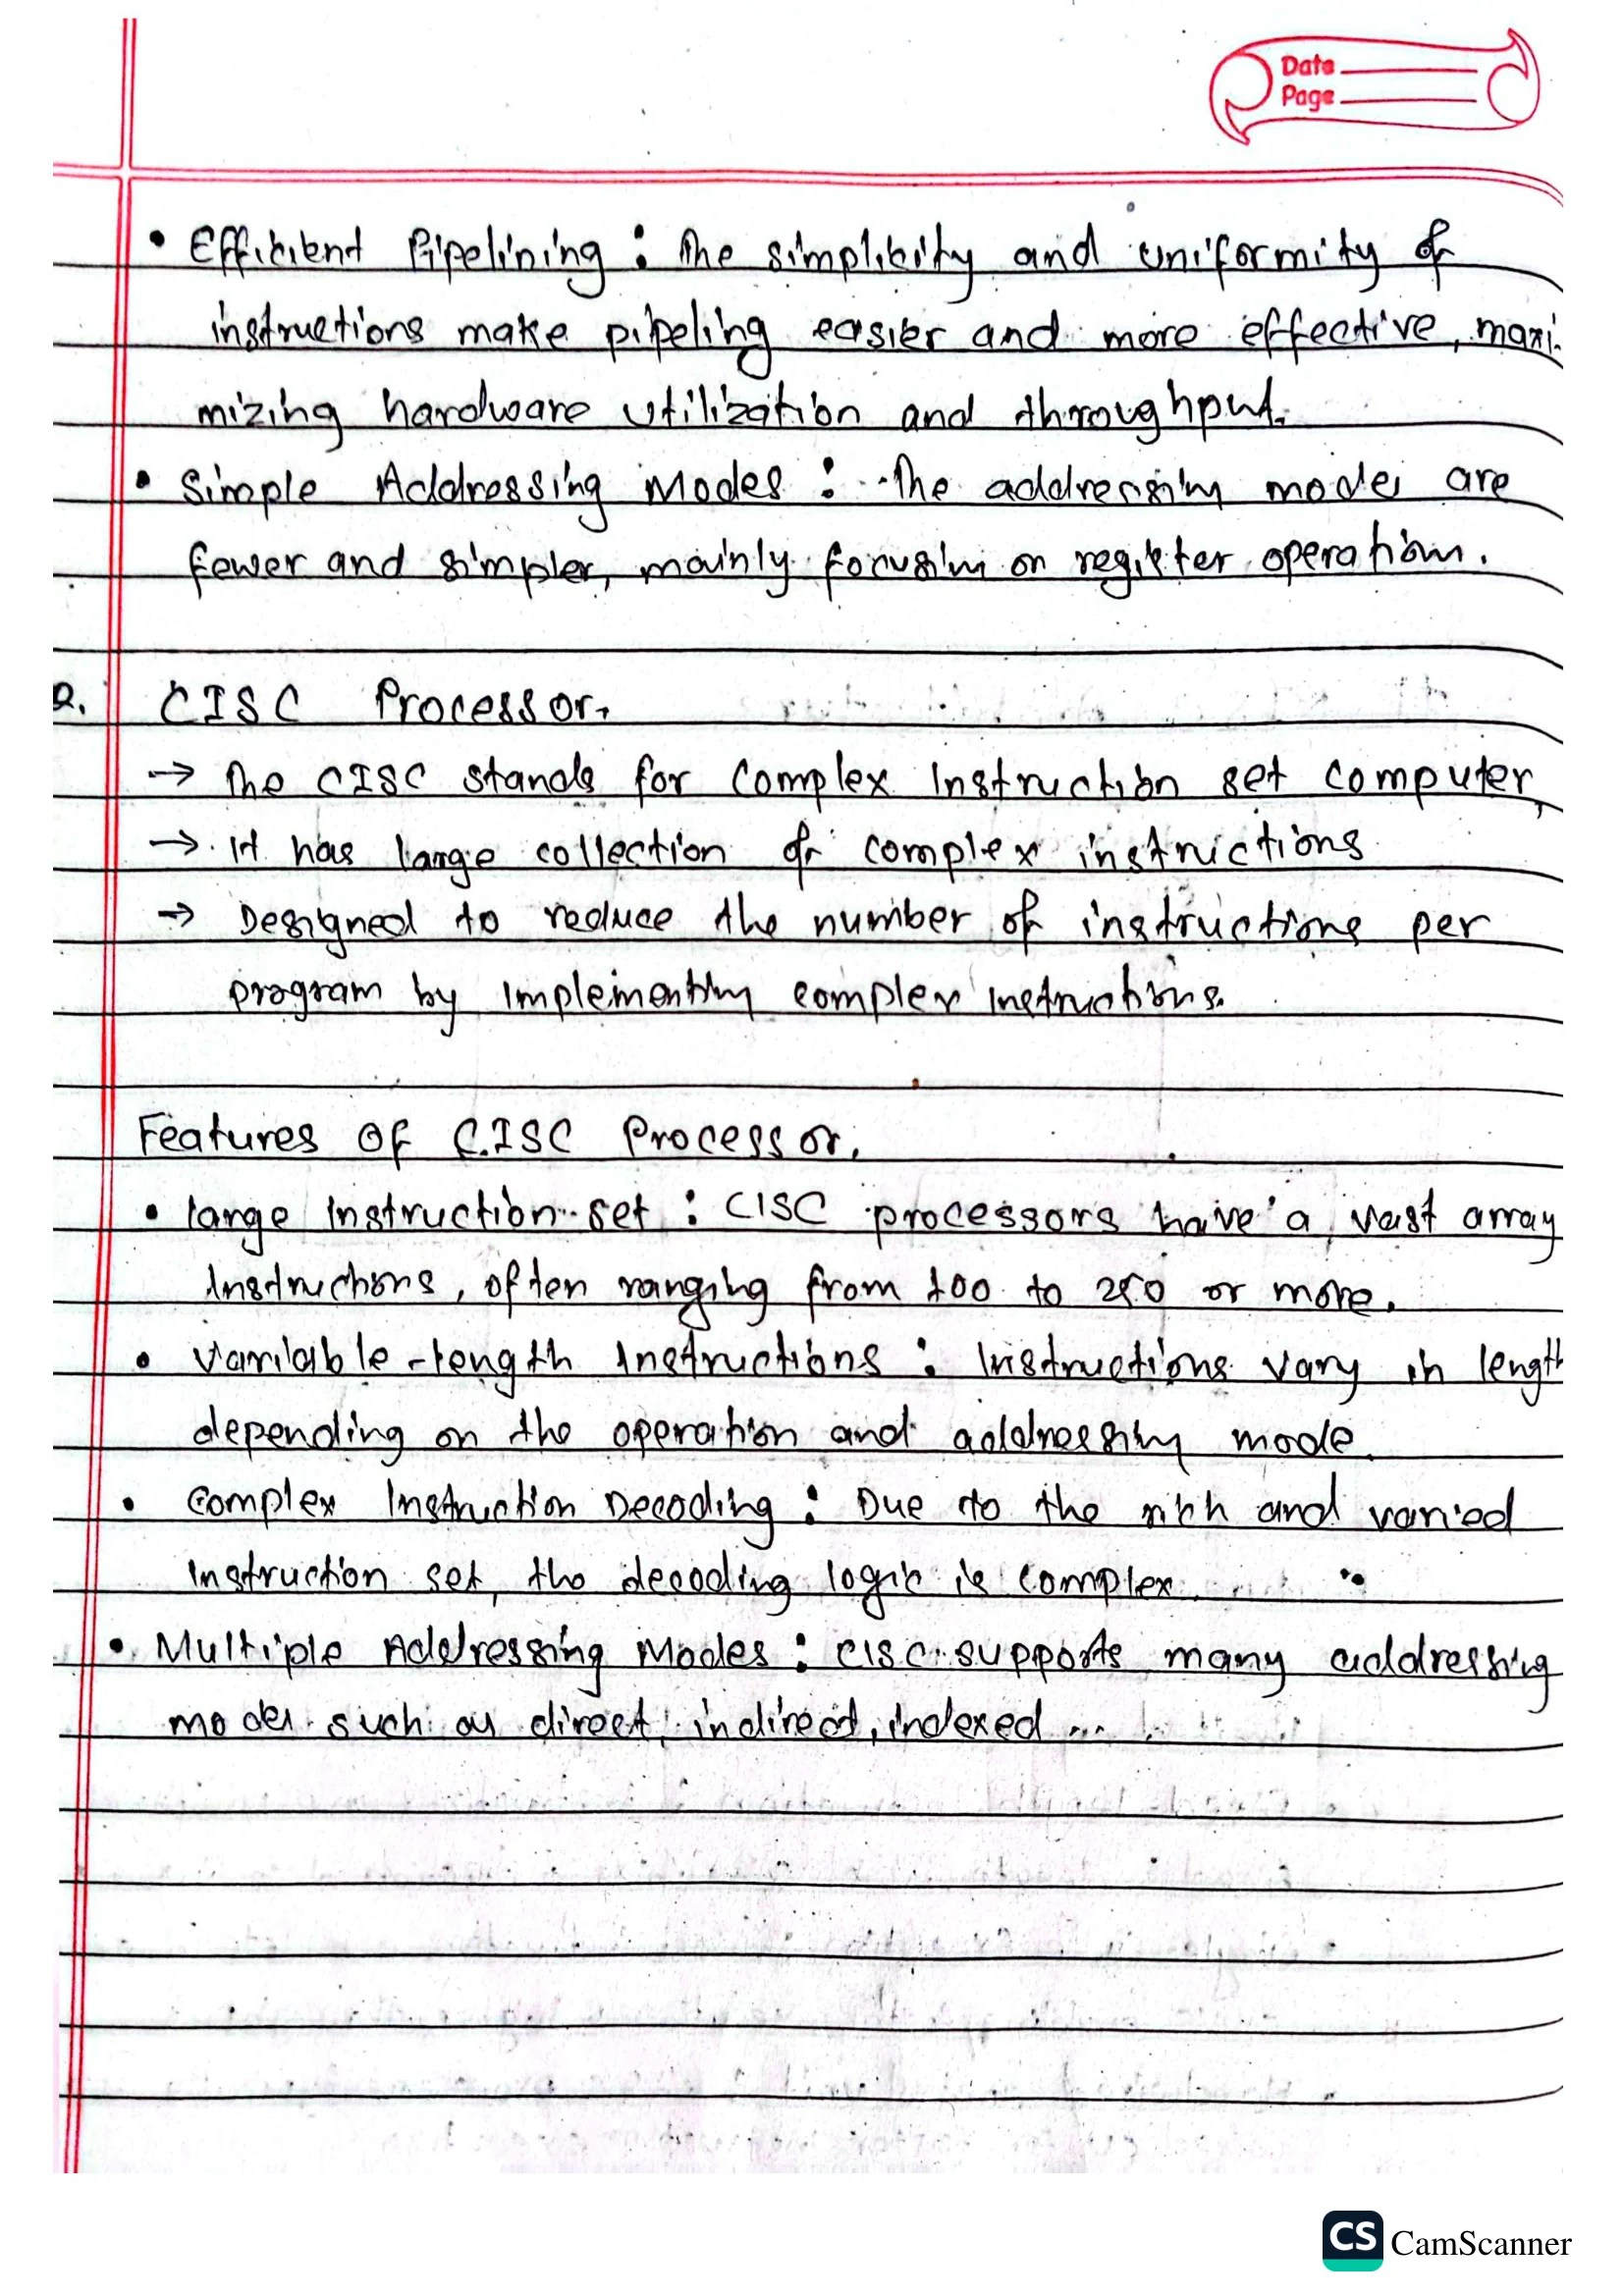 Date
Page
• Efficient Pipelining : The simplicity and uniformity of
instructions make pipeling easier and more effective, maxi-
mizing hardware utilization and throughput.
• Simple Addressing Modes : The addressing modes are
fewer and simpler, mainly focusing on register operations.
2. CISC Processor.
→ The CISC stands for Complex Instruction set computer,
→ It has large collection of complex instructions
→ Designed to reduce the number of instructions per
program by implementing complex instructions.
Features of CISC Processor.
• large Instruction set : CISC processors have a vast array
instructions, often ranging from 100 to 250 or more.
• Variable-length Instructions : Instructions vary in length
depending on the operation and addressing mode.
• Complex Instruction Decoding : Due to the rich and varied
instruction set, the decoding logic is complex.
• Multiple Addressing Modes : CISC supports many addressing
modes such as direct, indirect, indexed ...
CS CamScanner